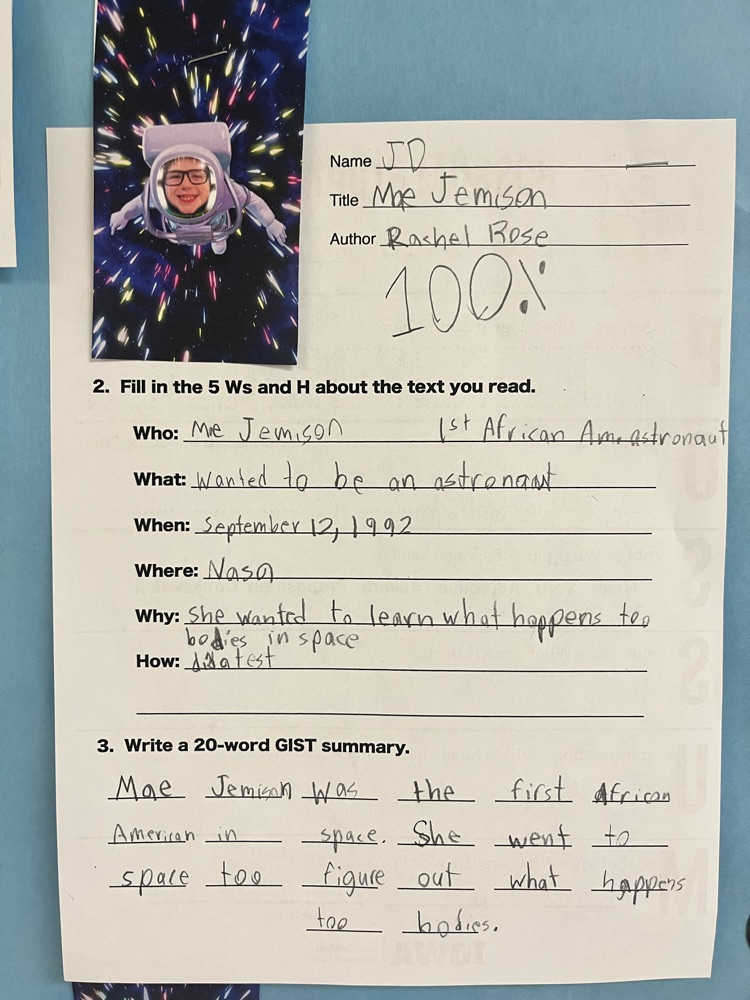 Name JD
Title Mae Jemison
Author Rachel Rose
100%
2. Fill in the 5 Ws and H about the text you read.
Who: Me Jemison 1st African Am. astronaut
What: Wanted to be an astronaut
When: September 12, 1992
Where: Nasa
Why: she wanted to learn what happens too
bodies in space
How: did a test
3. Write a 20-word GIST summary.
Mae Jemison was the first African
American in space. She went to
space too figure out what happens
too bodies.